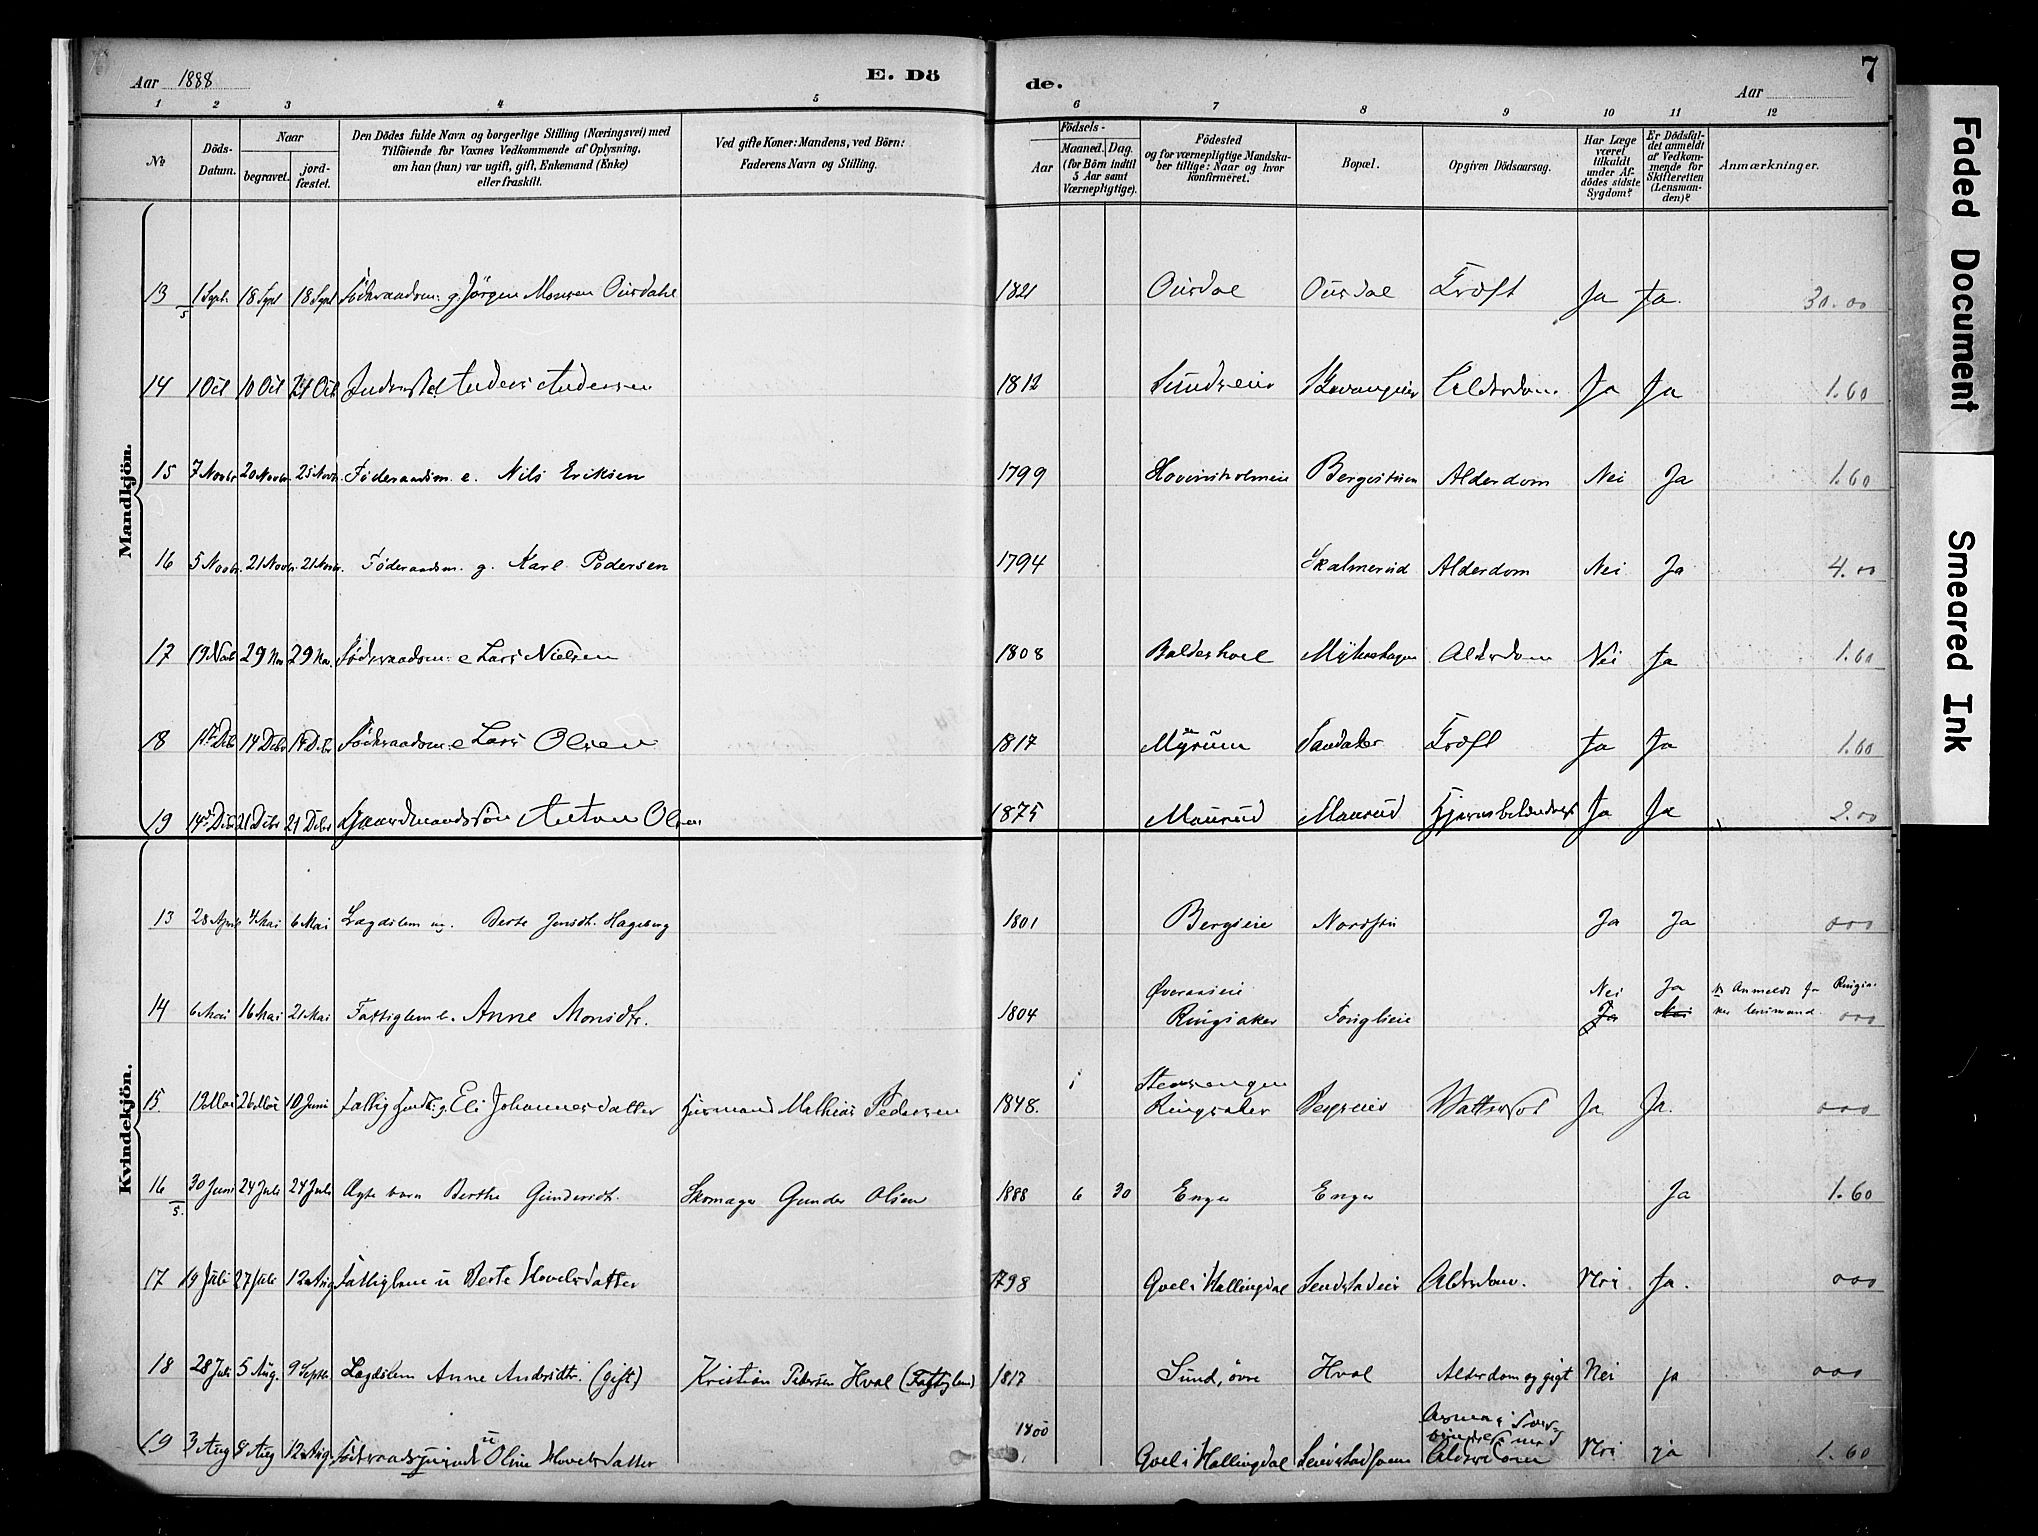 Aar 1888 E. Dö de. Aar 7
1 2 3 4 5 6 7 8 9 10 11 12
No
Döds-Datum.
Naar
begravet.
jord-fæstet.
Den Dödes fulde Navn og borgerlige Stilling (Næringsvei) med
Tilföiende for Voxnes Vedkommende af Oplysning,
om han (hun) var ugift, gift, Enkemand (Enke)
eller fraskilt.
Ved gifte Koner: Mandens, ved Börn:
Faderens Navn og Stilling.
Födsels-
Aar
Maaned. Dag.
(for Börn indtil
5 Aar samt
Værnepligtige).
Födested
og for værnepligtige Mandska-
ber tillige: Naar og hvor
konfirmeret.
Bopæl.
Opgiven Dödsaarsag.
Har Læge
været
tilkaldt
under Af-
dödes sidste
Sygdom?
Er Dödsfal-
det anmeldt
af Vedkom-
mende for
Skifteretten
(Lensman-
den)?
Anmærkninger.
Mandkjön.
13 1 Sept. 18 Sept 18 Sept Föderaadsm. g. Jörgen Monsen Ousdahl 1821 Ousdal Ousdal Kræft Ja Ja. 30.00
14 1 Oct 10 Oct 21 Oct Anders Andersen 1812 Sundseie Alderdom. Ja Ja 1.60
15 7 Novbr 20 Novbr. 25 Novbr. Föderaadsm. e. Nils Eriksen 1799 Hovinsholmeie Alderdom Nei Ja 1.60
16 5 Novbr. 21 Novbr. 21 Novbr. Föderaadsm. g. Karl Pedersen 1794 Skalmerud Alderdom Nei Ja 4.00
17 19 Nov 29 Nov 29 Nov. Föderaadsm: e Lars Nielsen 1808 Baldishoel Myhrehagen Alderdom Nei Ja 1.60
18 14 Debr 14 Debr Föderaadsm: e Lars Olsen 1817 Myrum Sandaker Kræft Ja Ja 1.60
19 14 21 Debr 21 Debr Gaardmandssön Anton Olsen 1875 Maurud Maurud Ja Ja 2.00
Kvindekjön.
13 28 April 4 Mai 6 Mai Lægdslem ug. Berte Jensdt. Hageberg 1801 Bergseie Nordstu Ja Ja 000
14 6 Mai 16 Mai 21 Mai Fattiglem e. Anne Monsdtr. 1804 Øveraaseie Ringsaker Nei Ja Ja Nei Anmeldt for Ringsa-
ker lensmand. 000
15 19 Mai 26 Mai 10 Juni Fattig g. Eli Johannesdatter Husmand Mathias Pedersen 1848. Stensengen
Ringsaker Bergseie Vattersot Ja Ja. 000
16 5. 30 Juni 24 Juli 24 Juli Ægte barn Berthe Gundersdt. Skomager Gunder Olsen 1888 6 30 Enger Enger Ja 1.60
17 19 Juli 27 Juli 12 Aug Fattiglem u Berte Hovelsdatter 1798 Goel i Hallingdal Sendstadeie Alderdom. Nei. Ja. 000
18 28 Juli 5 Aug. 9 Septbr. Lægdslem Anne Andersdtr. (gift) Kristian Pedersen Hval (Fattiglem) 1817 Sund, øvre Hval Alderdom og gigt Nei ja 000
19 3 Aug 8 Aug 12 Aug. u Oline Hovelsdatter 1800 Goel i Hallingdal Alderdom Nei ja 1.60
Faded Document
Smeared Ink